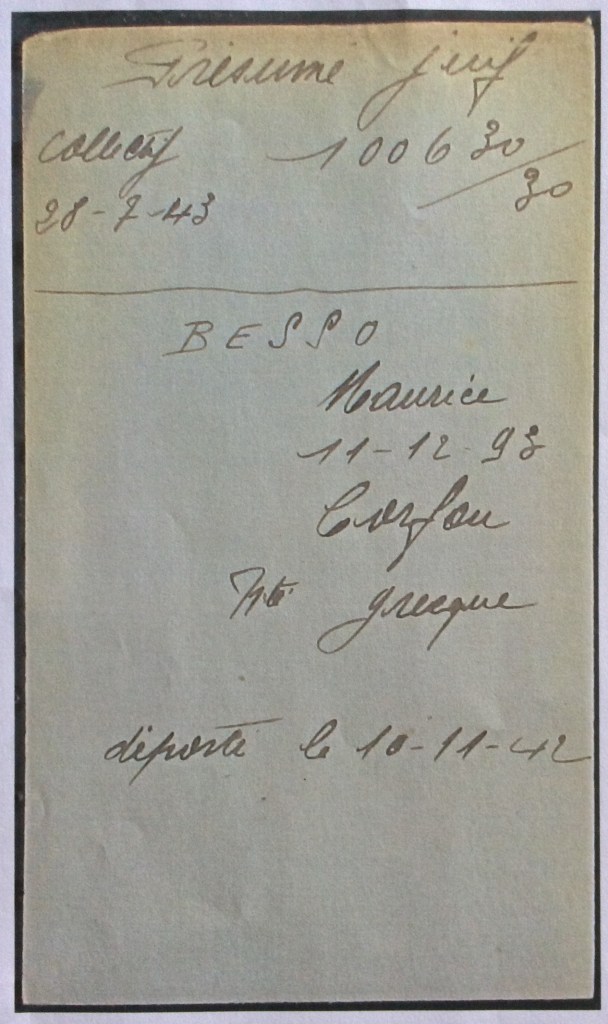 Présumé juif
Collectif 100630/30
28-7-43
BESSO
Maurice
11-12-93
Corfou
Nté grecque
déporté le 10-11-42